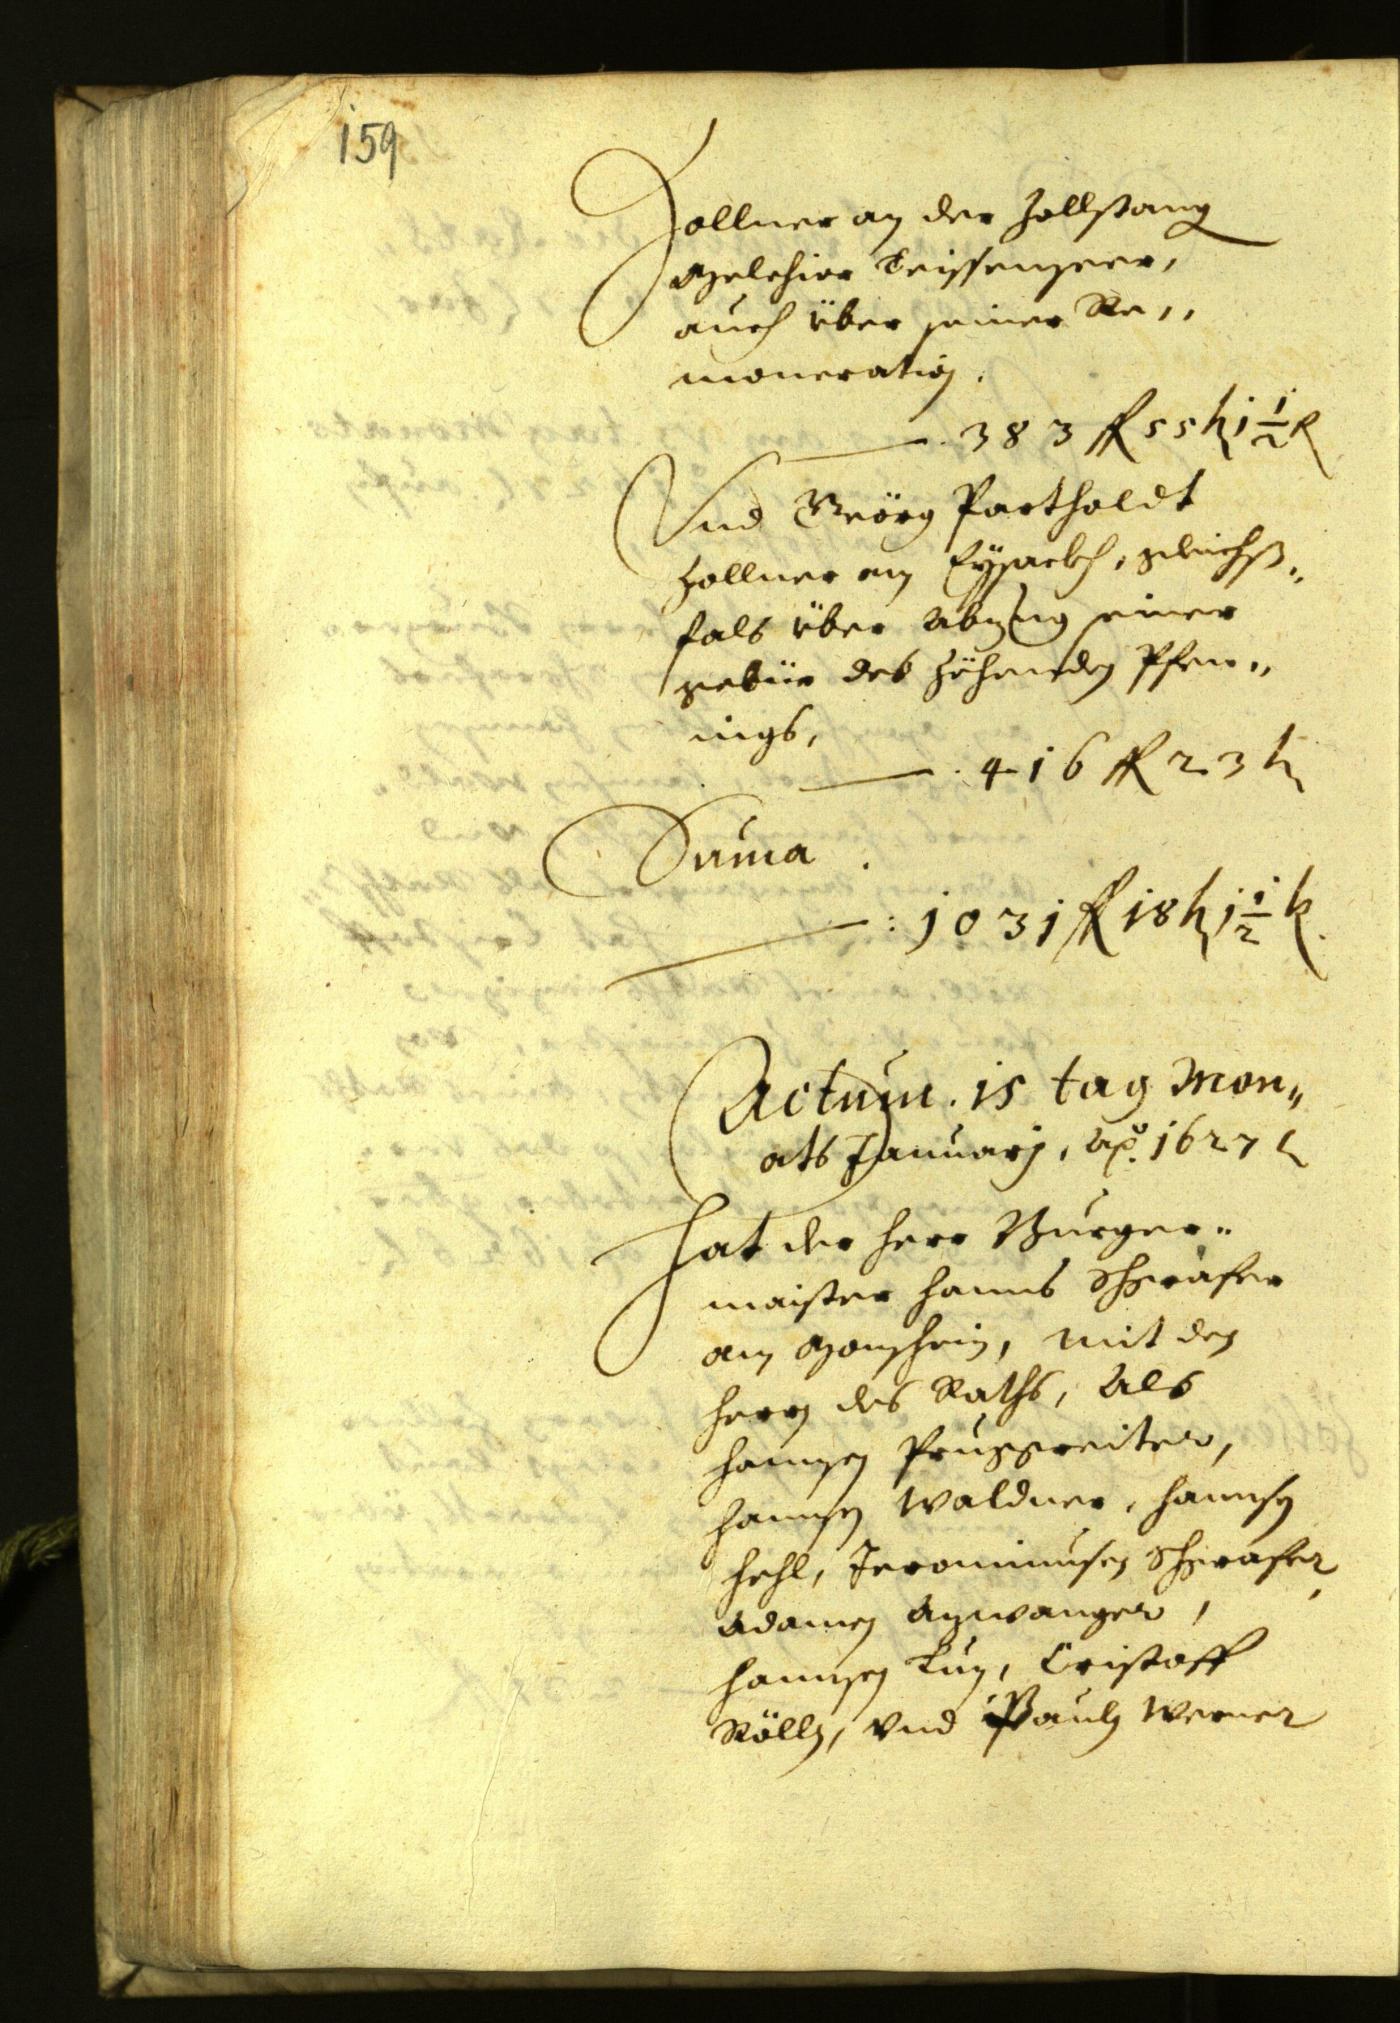 159
Zollner an der Zollstang
Melchior Teissenseer,
auch über seiner Re,,
moneration.
383 fl 55 kr 1 1/2 f
Und Geörg Partholdt
Zollner am Eysackh, gleichß,,
fals über Abzug seiner
gebür des Zöhenden Pfen,,
nings,
416 fl 23 kr
Suma
: 1031 fl 18 kr 1 1/2 f.
Actum. 15 tag Mon,,
ats Januarj, Ao. 1627
Hat der herr Burger,,
maister Hanns Schgrafer
am Monschein, mit den
herrn des Raths, Als
Hannsen Pruggreiter,
Hannsen Waldner, Hannsen
Hehl, Jeronimusen Schgrafer,
Adamen Anwanger,
Hannsen Lun, Cristoff
Rölln, vnd Pauln Werner